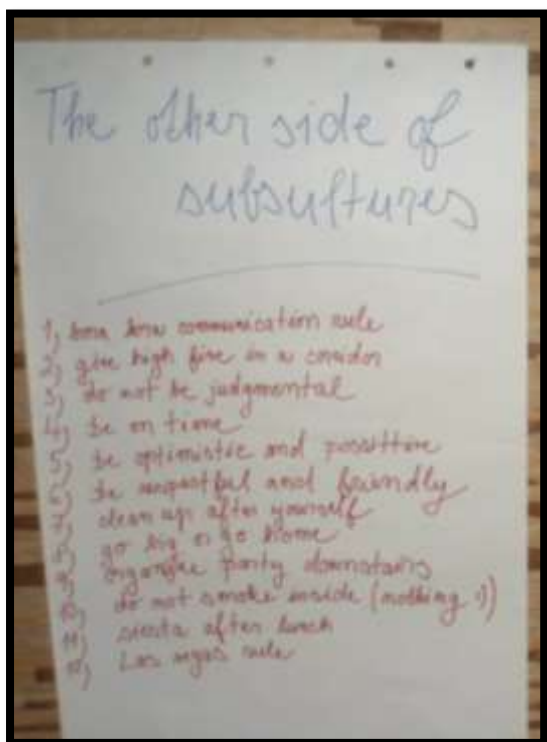 The other side of
subsultures
1, bom bom communication rule
2, give high five in a coridor
3, do not be judgmental
4, be on time
5, be optimistic and possitive
6, be respectful and friendly
7, clean up after yourself
8, go big or go home
9, organize party downstairs
10, do not smoke inside (nothing :))
11, siesta after lunch
12, Las vegas rule